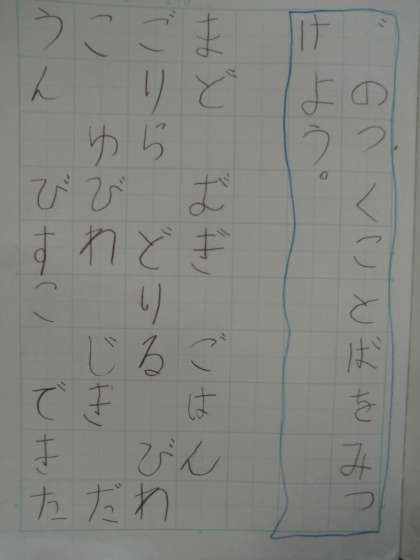 ゛のつくことばをみつ
けよう。
まど　む゛ぎ　ごはん
ごりら　どりる　びわ
こ　ゆびわ　じぎ　だ
うん　びすこ　できた